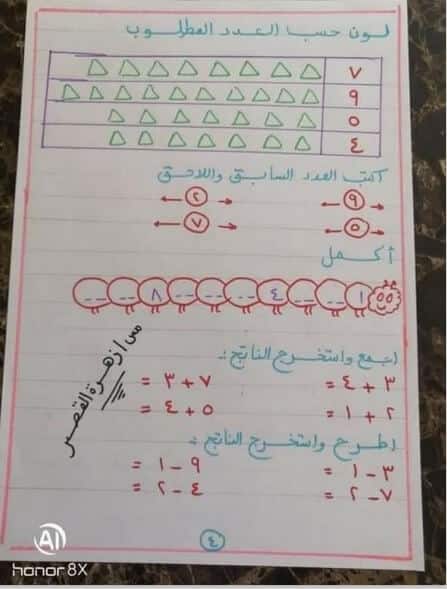 لون حسب العدد المطلوب
٧
٩
٥
٤
اكتب العدد السابق واللاحق
٩ ٢
٥ ٧
أكمل
١ _ _ ٤ _ _ _ ٨ _ _
اجمع واستخرج الناتج :
٣ + ٤ = ٧ + ٣ =
٢ + ١ = ٥ + ٤ =
اطرح واستخرج الناتج :
٣ - ١ = ٩ - ١ =
٧ - ٢ = ٤ - ٢ =
مس / زهرة القصر
٤
AI
honor 8X